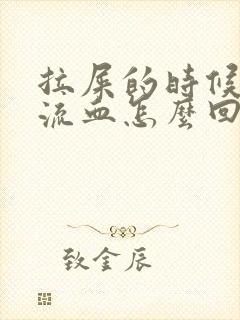 拉屎的時候
流血怎麼回
致金辰